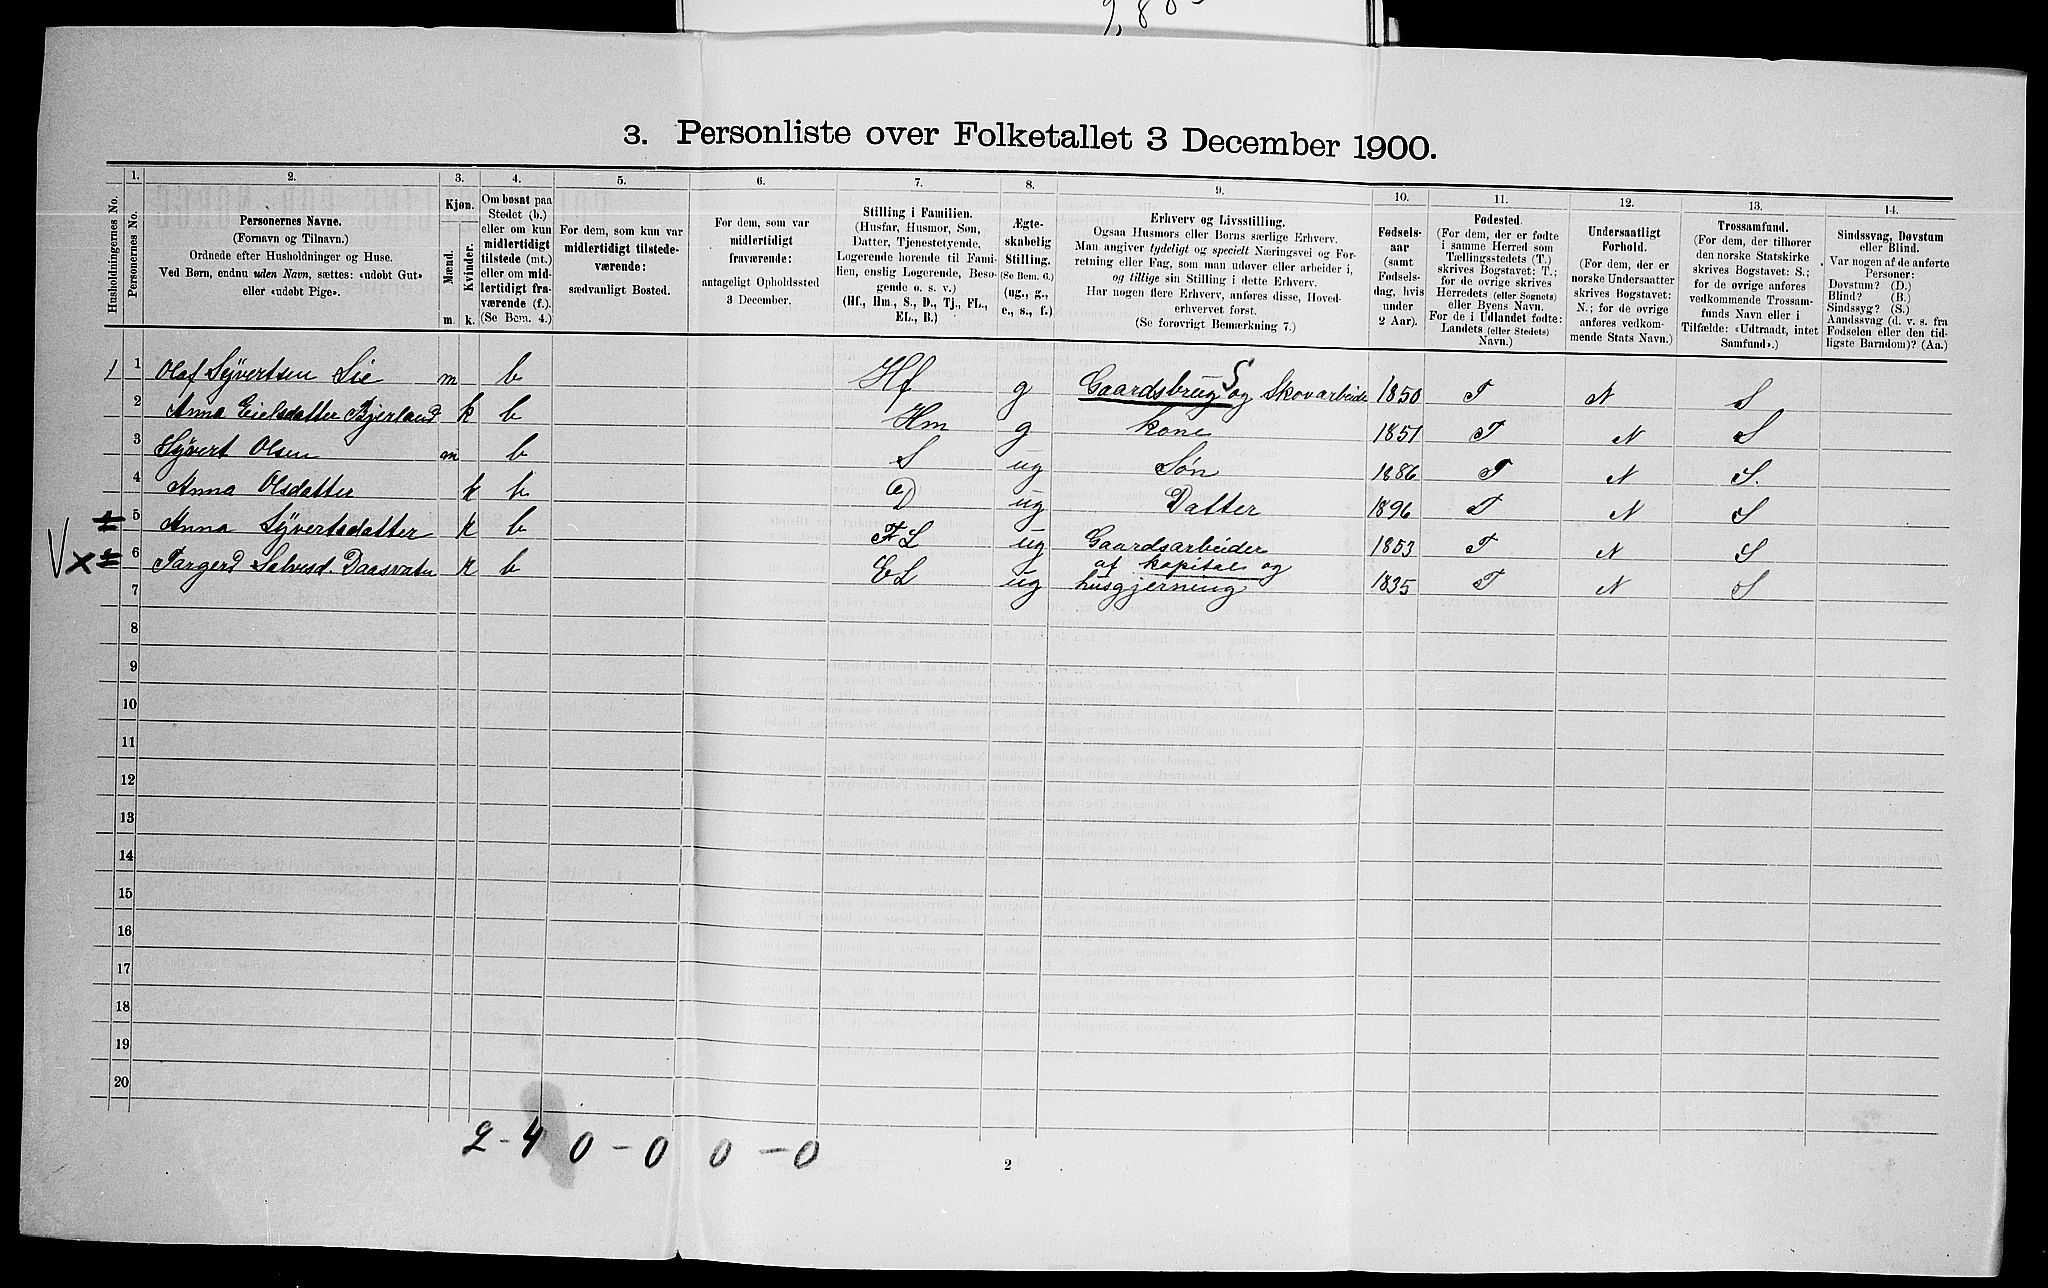 3. Personliste over Folketallet 3 December 1900.
Husholdningernes No.
1.
Personernes No.
2.
Personernes Navne.
(Fornavn og Tilnavn.)
Ordnede efter Husholdninger og Huse.
Ved Børn, endnu uden Navn, sættes: «udøbt Gut»
eller «udøbt Pige».
3.
Kjøn.
Mænd.
Kvinder.
m.
k.
4.
Om bosat paa
Stedet (b.)
eller om kun
midlertidigt
tilstede (mt.)
eller om mid-
lertidigt fra-
værende (f.).
(Se Bem. 4.)
5.
For dem, som kun var
midlertidigt tilstede-
værende:
sædvanligt Bosted.
6.
For dem, som var
midlertidigt
fraværende:
antageligt Opholdssted
3 December.
7.
Stilling i Familien.
(Husfar, Husmor, Søn,
Datter, Tjenestetyende,
Logerende hørende til Fami-
lien, enslig Logerende, Besø-
gende o. s. v.)
(Hf., Hm., S., D., Tj., FL.,
EL., B.)
8.
Ægte-
skabelig
Stilling.
(Se Bem. 6.)
(ug., g.,
e., s., f.)
9.
Erhverv og Livsstilling.
Ogsaa Husmors eller Børns særlige Erhverv.
Man angiver tydeligt og specielt Næringsvei og For-
retning eller Fag, som man udøver eller arbeider i,
og tillige sin Stilling i dette Erhverv.
Har nogen flere Erhverv, anføres disse, Hoved-
erhvervet først.
(Se forøvrigt Bemærkning 7.)
10.
Fødsels-
aar
(samt
Fødsels-
dag, hvis
under
2 Aar).
11.
Fødested.
(For dem, der er fødte
i samme Herred som
Tællingsstedets (T.)
skrives Bogstavet: T.;
for de øvrige skrives
Herredets (eller Sognets)
eller Byens Navn.
For de i Udlandet fødte:
Landets (eller Stedets)
Navn.)
12.
Undersaatligt
Forhold.
(For dem, der er
norske Undersaatter
skrives Bogstavet:
N.; for de øvrige
anføres vedkom-
mende Stats Navn.)
13.
Trossamfund.
(For dem, der tilhører
den norske Statskirke
skrives Bogstavet: S.;
for de øvrige anføres
vedkommende Trossam-
funds Navn eller i
Tilfælde: «Udtraadt, intet
Samfund».)
14.
Sindssvag, Døvstum
eller Blind.
Var nogen af de anførte
Personer:
Døvstum? (D.)
Blind? (B.)
Sindssyg? (S.)
Aandssvag (d. v. s. fra
Fødselen eller den tid-
ligste Barndom)? (Aa.)
1 1 Olaf Syvertsen Lie m b Hf g Gaardsbrug S og Skovarbeide 1850 T N S
2 Anna Eielsdatter Bjerland k b Hm g kone 1851 T N S
3 Syvert Olsen m b S ug Søn 1886 T N S.
4 Anna Olsdatter k b D ug Datter 1896 T N S
5 Anna Syvertsdatter k b FL ug Gaardsarbeider 1853 T N S
6 Targerd Salvesd. Daasvatn k b EL ug af kapital og
husgjerning 1835 T N S
7
8
9
10
11
12
13
14
15
16
17
18
19
20
2-4 0-0 0-0
2